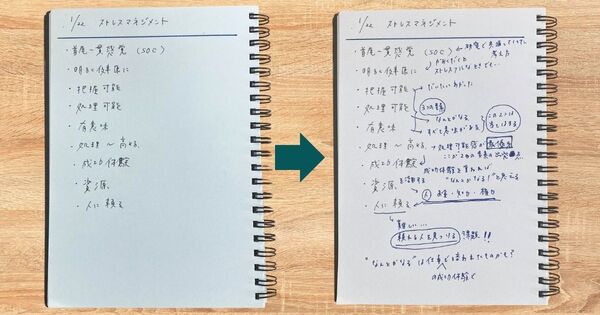 1/22 ストレスマネジメント
・首尾一貫感覚 (SOC)
・明るく健康に
・把握可能
・処理可能
・有意味
・処理〜高める
・成功体験
・資源
・人に頼る
1/22 ストレスマネジメント
・首尾一貫感覚 (SOC)
考えた
・明るく健康に
ストレスフルなときでも…
・把握可能
だいたいわかった
・処理可能
3つの要素
なんとかなる
・有意味
すべて意味がある
この2つは
・処理〜高める
処理可能感が最優先
・成功体験
成功体験と言えば
・資源
を活用する
"なんとかなる!"と思える
人 お金・知力・権力
・人に頼る
難しい…
頼れる人を見つける 課題!!
"なんとかなる"は仕事で培われたものかも?
の成功体験で